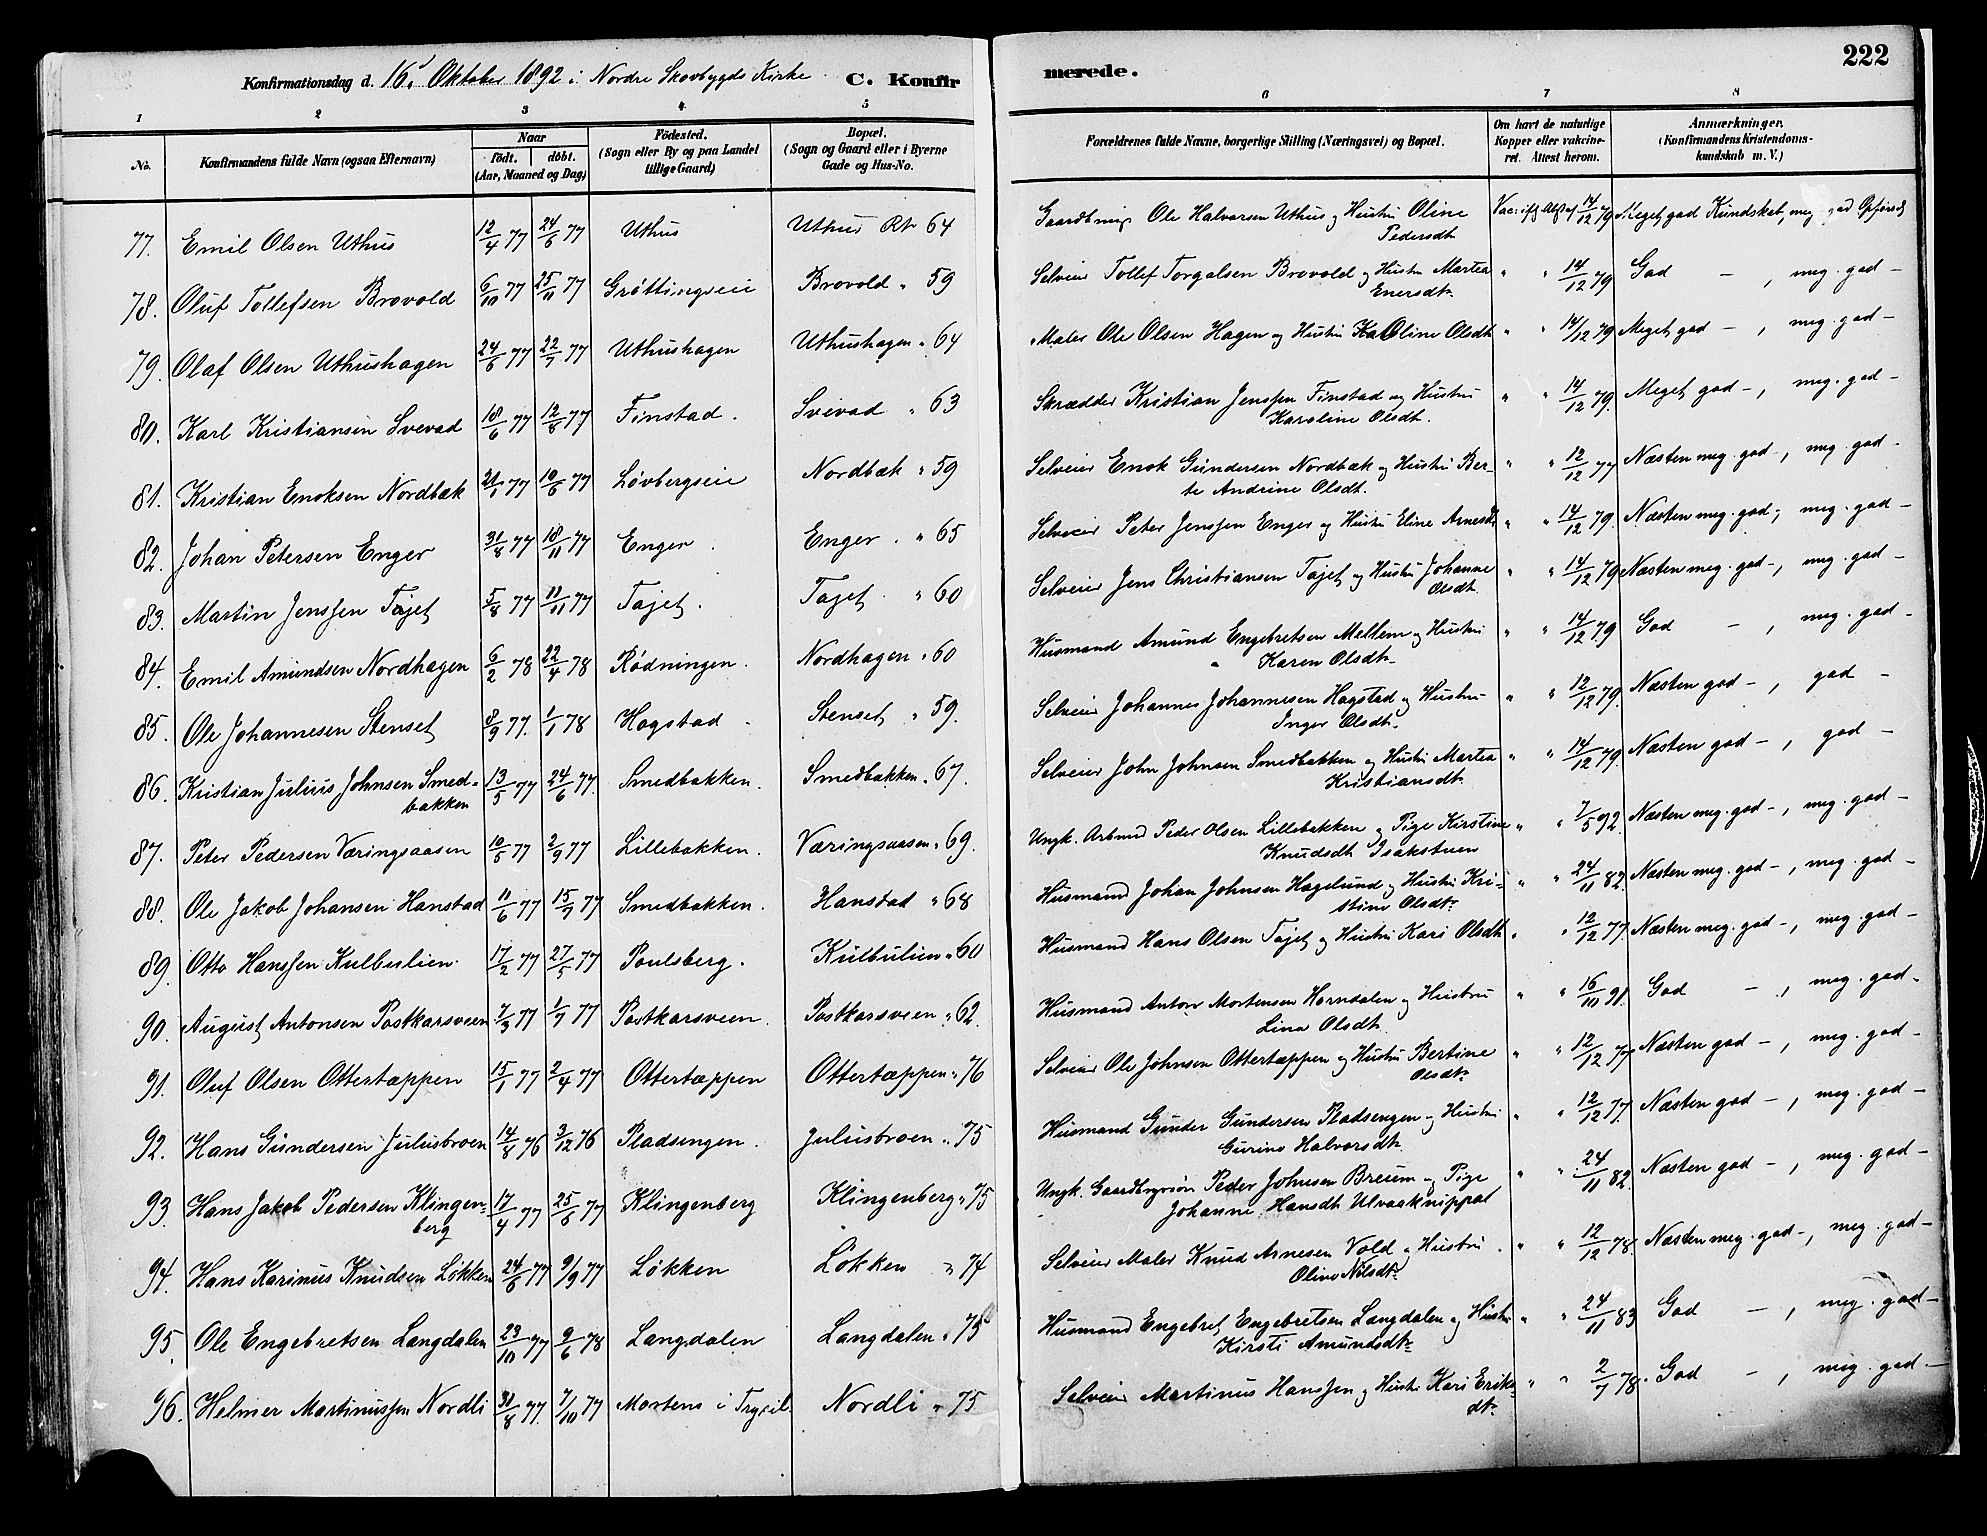 222
Konfirmationsdag d. 16. Oktober 1892 i Nordre Skovbygds Kirke C. Konfirmerede.
1 2 3 4 5 6 7 8
No. Konfirmandens fulde Navn (ogsaa Efternavn) Naar födt. döbt. (Aar, Maaned og Dag) Födested. (Sogn eller By og paa Landet tillige Gaard) Bopæl. (Sogn og Gaard eller i Byerne Gade og Hus-No. Forældrenes fulde Navne, borgerlige Stilling (Næringsvei) og Bopæl. Om havt de naturlige Kopper eller vaccineret. Attest herom. Anmærkninger. (Konfirmandens Kristendomskundskab m. V.)
77. Emil Olsen Uthus 12/4 77 24/6 77 Uthus Uthus Rt 64 Ole Halvorsen Uthus og Hustru Oline Pedersdt. 14/12 79 Meget god Kundskab, meg. god Opførsel
78. Oluf Tollefsen Brovold 6/10 77 25/11 77 Grøttingseie Brovold " 59 Selveier Tollef Torgalsen Brovold og Hustru Martea Enersdt. " " 14/12 79 God — , meg. god —
79. Olaf Olsen Uthushagen 24/6 77 22/7 77 Uthushagen Uthushagen " 64 Maler Ole Olsen Hagen og Hustru Karoline Olsdt " " 14/12 79 Meget god — , meg. god —
80. Karl Kristiansen Svevad 18/6 77 12/8 77 Finstad. Svevad " 63 Skrædder Kristian Jenssen Finstad og Hustru Karoline Olsdt. " " 14/12 79. Meget god —, meg. god —
81. Kristian Enoksen Nordbæk 21/1 77 10/6 77 Løvbergseie Nordbæk " 59 Selveier Enok Gundersen Nordbæk og Hustru Berte Andrine Olsdt. " " 12/12 77 Næsten meg. god —, meg. god —
82. Johan Petersen Enger 31/8 77 18/11 77 Enger. Enger. " 65 Selveier Peter Jenssen Enger og Hustru Eline Arnesdt " " 14/12 79. Næsten meg. god —, meg. god —
83. Martin Jenssen Tajet 5/8 77 11/11 77 Tajet. Tajet. " 60 Selveier Jens Christiansen Tajet og Hustru Johanne Olsdt. " " 14/12 79 Næsten meg. god —, meg. god —
84. Emil Amundsen Nordhagen 6/2 78 22/4 78 Rødningen. Nordhagen " 60 Husmand Amund Engebretsen Mellem og Hustru Karen Olsdt. " " 14/12 79 God — , meg. god —
85. Ole Johannesen Stenset 8/9 77. 1/1 78 Hagstad. Stenset " 59. Selveier Johannes Johannesen Hagstad og Hustru Inger Olsdt. " " 12/12 79. Næsten god —, god —
86. Kristian Julius Johnsen Smedbakken 13/5 77 24/6 77. Smedbakken. Smedbakken " 67. Selveier John Johnsen Smedbakken og Hustru Martea Kristiansdt. " " 14/12 79. Næsten god —, god —
87. Peter Pedersen Væringsaasen 10/5 77 2/9 77 Lillebakken. Væringsaasen " 69. Ungk. Arbmd Peder Olsen Lillebakken og Pige Kirstine Knudsdt Isakstuen " " 7/5 92. Næsten meg. god —, meg. god —
88. Ole Jakob Johansen Hanstad 11/6 77 15/7 77 Smedbakken. Hanstad " 68 Husmand Johan Johnsen Hagelund og Hustru Kristine Olsdt. " " 24/11 82. Næsten meg. god —, meg. god —
89. Otto Hanssen Kulbulien. 17/2 77 27/5 77 Poulsberg. Kulbulien " 60 Husmand Hans Olsen Tajet og Hustru Kari Olsdt. " " 12/12 77. Næsten meg. god —, meg. god —
90. August Antonsen Postkarsveen 7/3 77 1/7 77 Postkarsveen. Postkarsveen " 62. Husmand Anton Mortensen Horndalen og Hustru Lina Olsdt. " " 16/10 91. God — , meg. god —
91. Oluf Olsen Ottertæppen 15/1 77 2/4 77 Ottertæppen Ottertæppen " 76 Selveier Ole Johnsen Ottertæppen og Hustru Bertine Olsdt. " " 12/12 77 Næsten god —, meg. god —
92. Hans Gundersen Julusbroen 14/8 76 3/12 76 Pladsengen. Julusbroen " 75 Husmand Gunder Gundersen Pladsengen og Hustru Gurine Halvorsdt. " " 12/12 77. Næsten god —, meg. god —
93. Hans Jakob Pedersen Klingenberg 17/4 77 25/5 77 Klingenberg Klingenberg " 75 Ungk. Peder Johnsen Breum og Pige Johanne Hansdt Ulvaaknippet " " 24/11 82. Næsten god —, meg. god —
94. Hans Karinus Knudsen Løkken 24/6 77 9/9 77 Løkken Løkken " 74 Selveier Maler Knud Arnesen Vold og Hustru Oline Nilsdt. " " 12/12 78. Næsten meg. god —, meg. god —
95. Ole Engebretsen Langdalen 23/10 77 9/6 78 Langdalen Langdalen " 75 Husmand Engebret Engebretsen Langdalen og Hustru Kirsti Amundsdt. " " 24/11 83 God — , meg. god —
96. Helmer Martinussen Nordli 31/8 77. 7/10 77 Mortens i Trysil Nordli " 75 Selveier Martinus Hanssen og Hustru Kari Eriksdt. " " 2/7 78. God — , meg. god. —